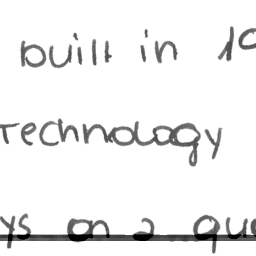 built in 19
Technology
ys on a qu